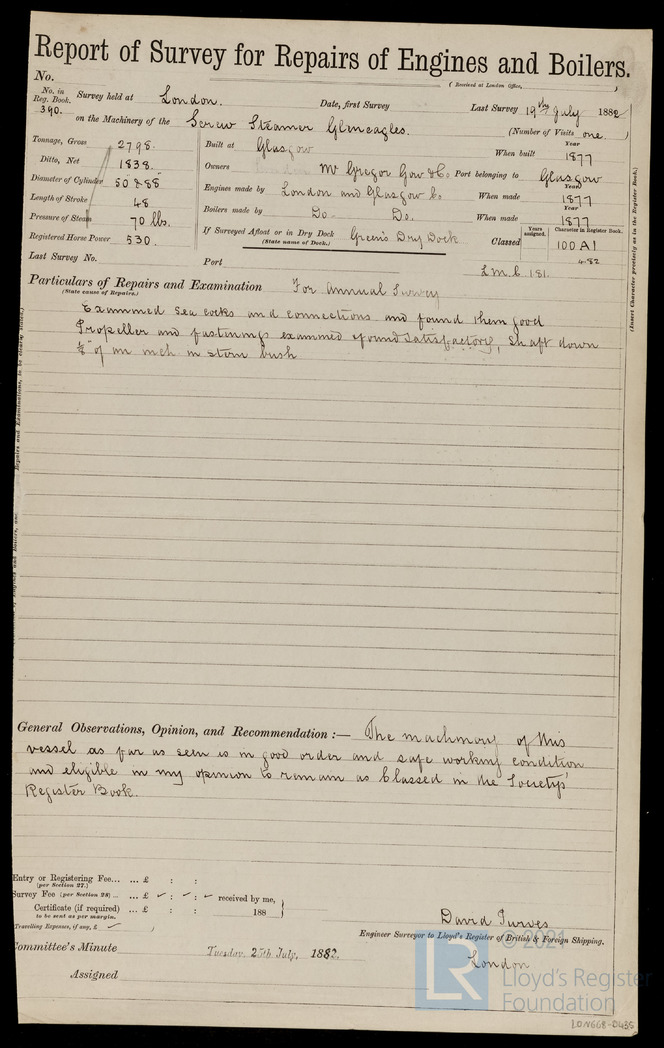 Report of Survey for Repairs of Engines and Boilers.
No.
(Received at London Office, )
No. in Reg. Book. 390. Survey held at London. Date, first Survey Last Survey 19th July 1882
on the Machinery of the Screw Steamer Gleneagles. (Number of Visits one. )
Tonnage, Gross 2798.
Ditto, Net 1838.
Diameter of Cylinder 50 & 88
Length of Stroke 48
Pressure of Steam 70 lbs.
Registered Horse Power 530.
Built at Glasgow When built Year 1877
Owners McGregor Gow & Co Port belonging to Glasgow
Engines made by London and Glasgow Co When made Year 1877
Boilers made by Do. Do. When made Year 1877
If Surveyed Afloat or in Dry Dock Green's Dry Dock
(State name of Dock.)
Classed Years assigned. Character in Register Book. 100 A1
4.82
Last Survey No. Port L.M.C. 181.
Particulars of Repairs and Examination For Annual Survey
(State cause of Repairs.)
Examined sea cocks and connections and found them good
Propeller and fastenings examined & found satisfactory, shaft down
of an inch in stern bush
General Observations, Opinion, and Recommendation :— The machinery of this
vessel as far as seen is in good order and safe working condition
and eligible in my opinion to remain as Classed in the Society's
Register Book.
Entry or Registering Fee... ... £ : :
(per Section 27.)
Survey Fee (per Section 28) ... ... £ : : received by me,
Certificate (if required) ... £ : : 188
to be sent as per margin.
Travelling Expenses, if any, £
David Purves
Engineer Surveyor to Lloyd's Register of British & Foreign Shipping.
London
Committee's Minute Tuesday, 25th July, 1882.
Assigned
(Insert Character precisely as in the Register Book.)
© 2021
LR
Lloyd's Register
Foundation
LON668-0435